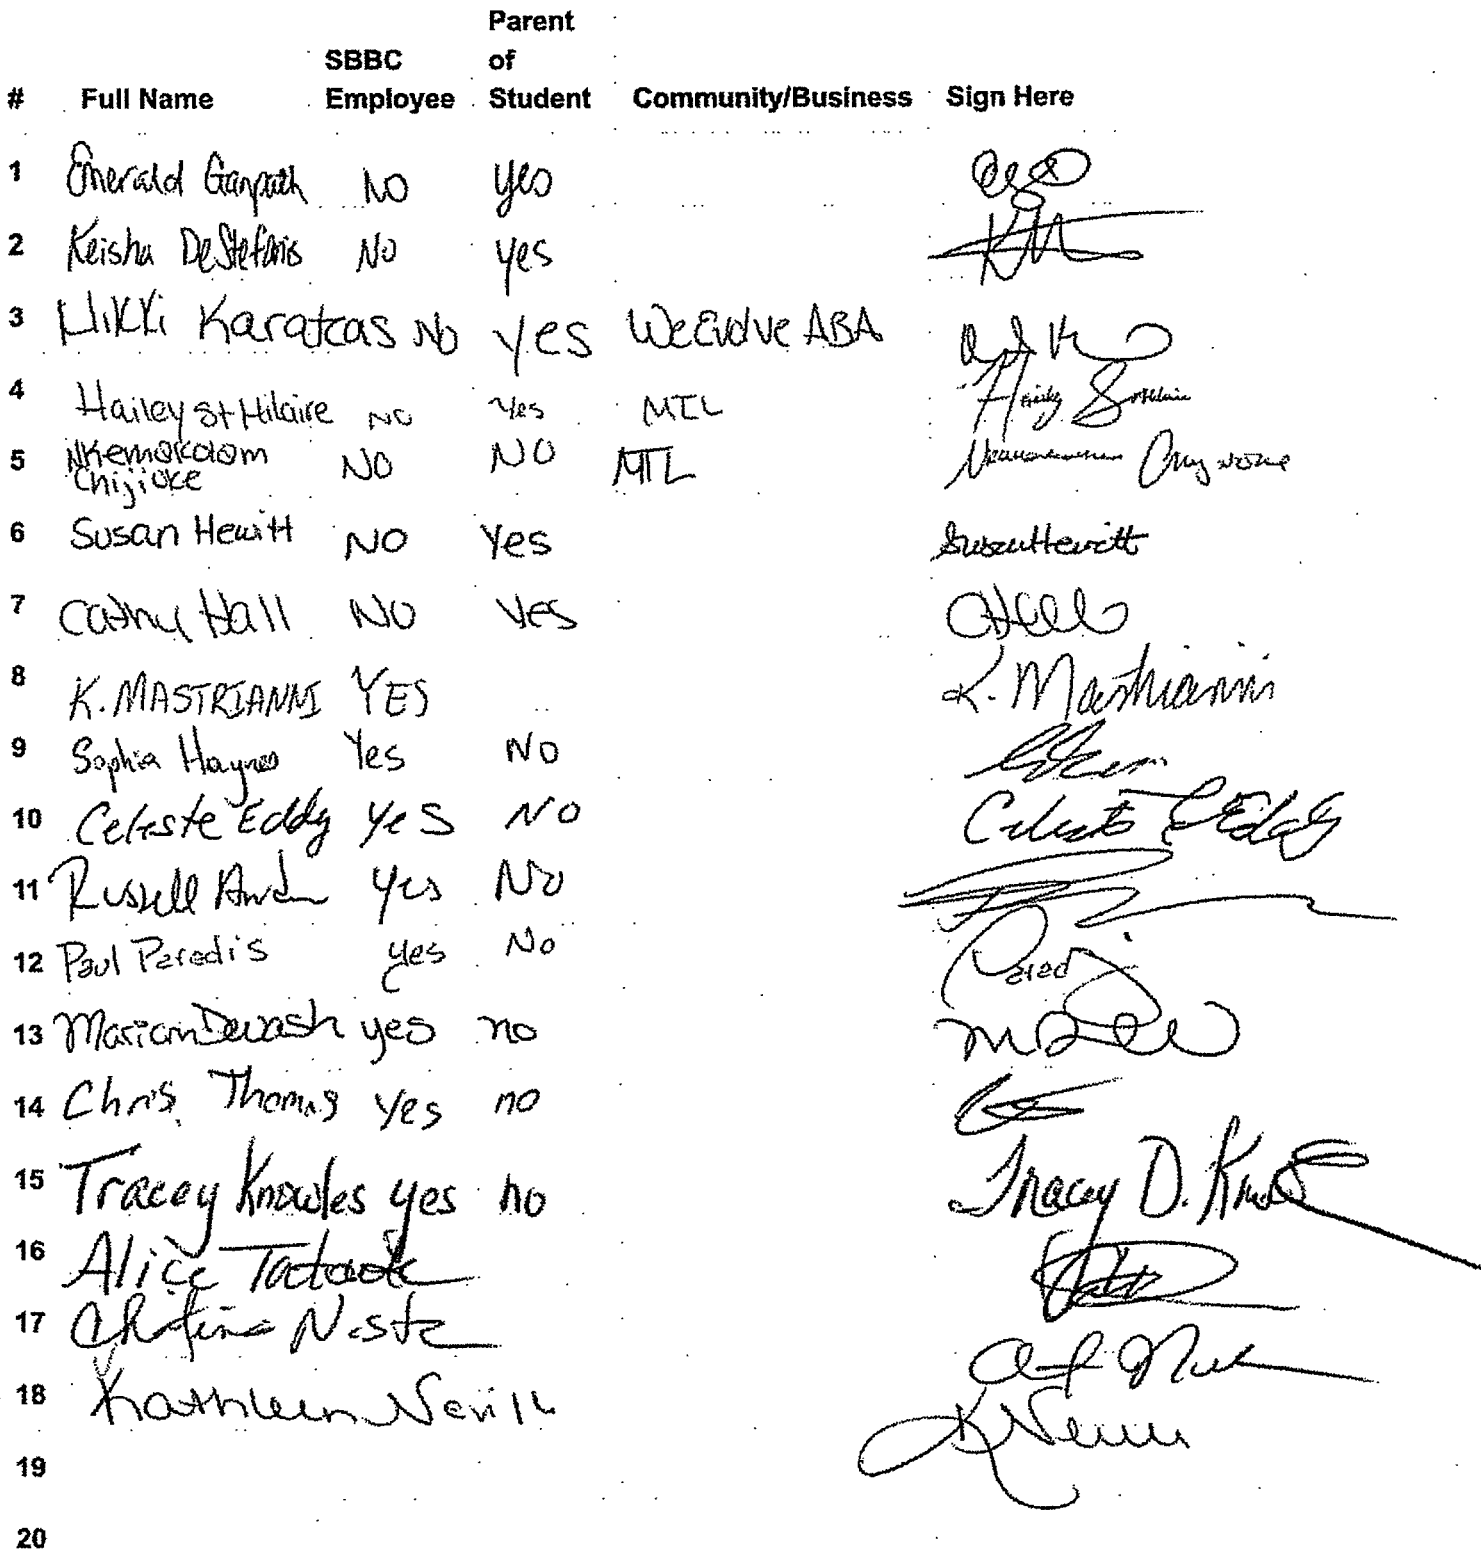 Parent
SBBC of
# Full Name Employee Student Community/Business Sign Here
1 Emerald Ganpath NO yes
2 Keisha DeStefanis No yes
3 Nikki Karatcas No yes WeEvolve ABA
4 Hailey St Hilaire NO Yes MTL Hailey St Hilaire
5 Nkemakolam NO NO MTL
Chijioke
6 Susan Hewitt NO Yes Susan Hewitt
7 Cathy Hall NO Yes CHall
8 K. MASTRIANNI YES K. Mastrianni
9 Sophia Haynes Yes NO
10 Celeste Eddy Yes NO Celeste Eddy
11 Russell Yes No
12 Paul Peredis yes No Pered
13 Mariam Dewash yes no
14 Chris Thomas Yes no
15 Tracey Knowles yes no Tracey D. Knowles
16 Alice
17 Christine
18 Kathleen Neville K Neville
19
20